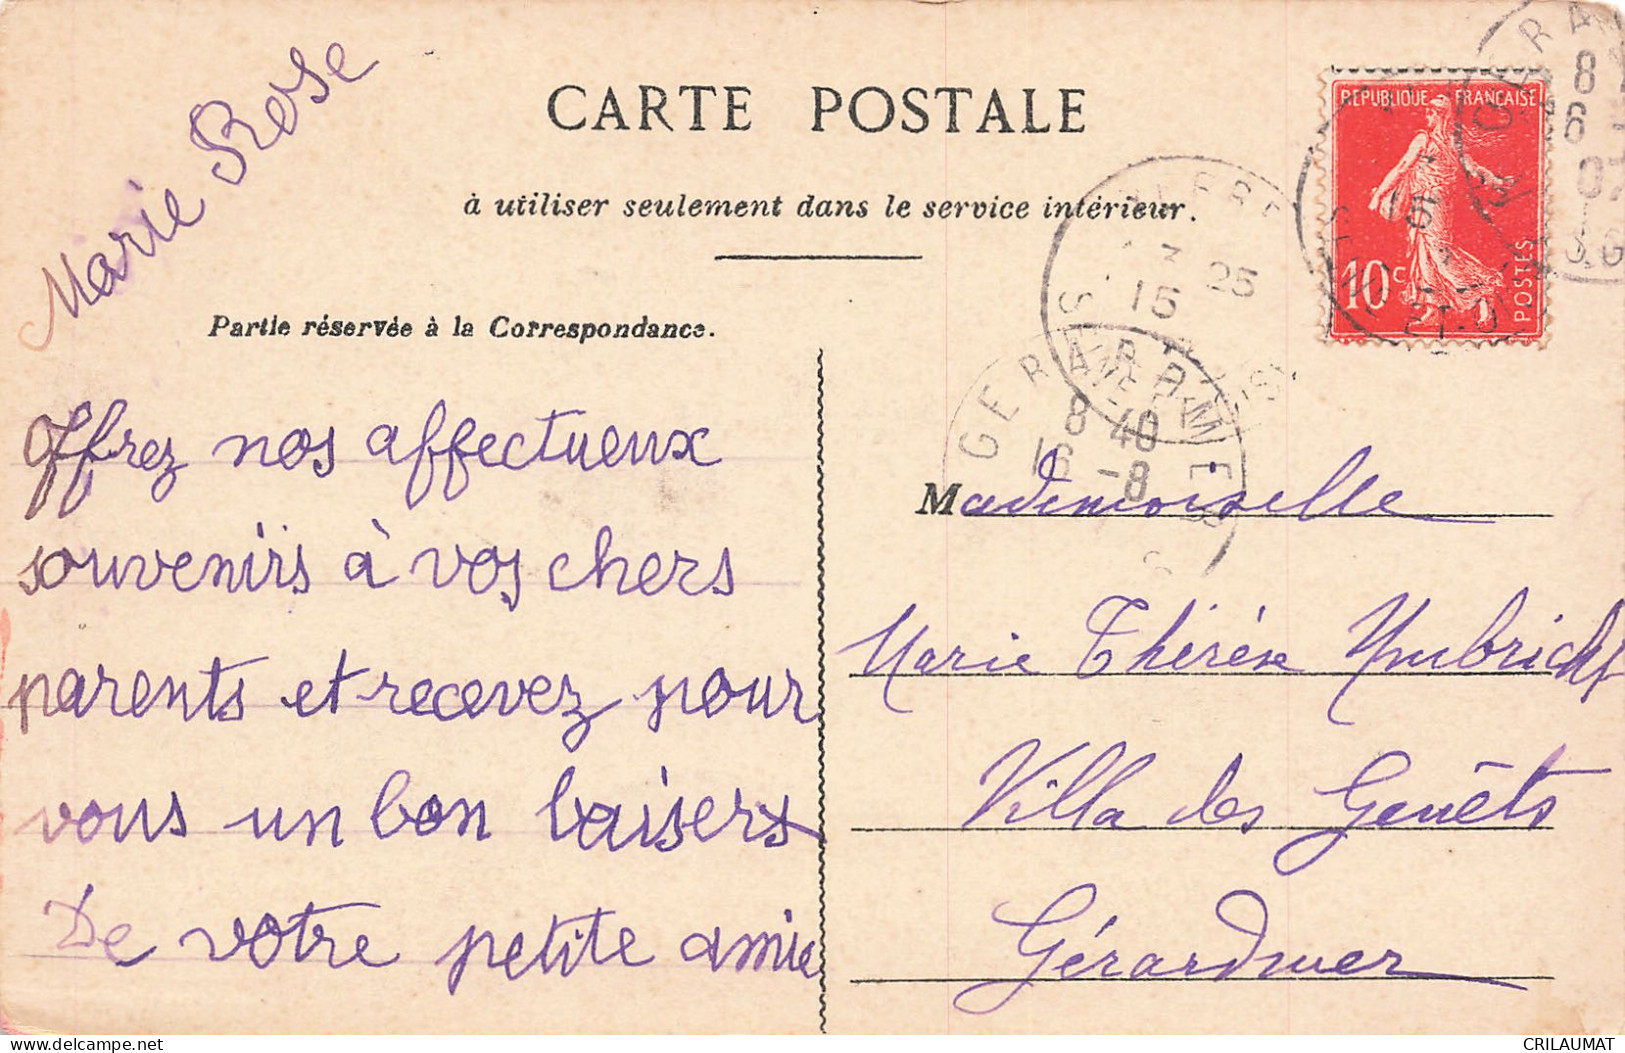 CARTE POSTALE
à utiliser seulement dans le service intérieur.
Partie réservée à la Correspondance.
Marie Rose
Offrez nos affectueux
souvenirs à vos chers
parents et recevez pour
vous un bon baisers
De votre petite amie
REPUBLIQUE FRANÇAISE
10c
POSTES
3 25
15
GERARDMER
8 40
16 -8
VOSGES
8
6
07
15
Mademoiselle
Marie Thérèse
Villa des Genêts
Gérardmer
CRILAUMAT